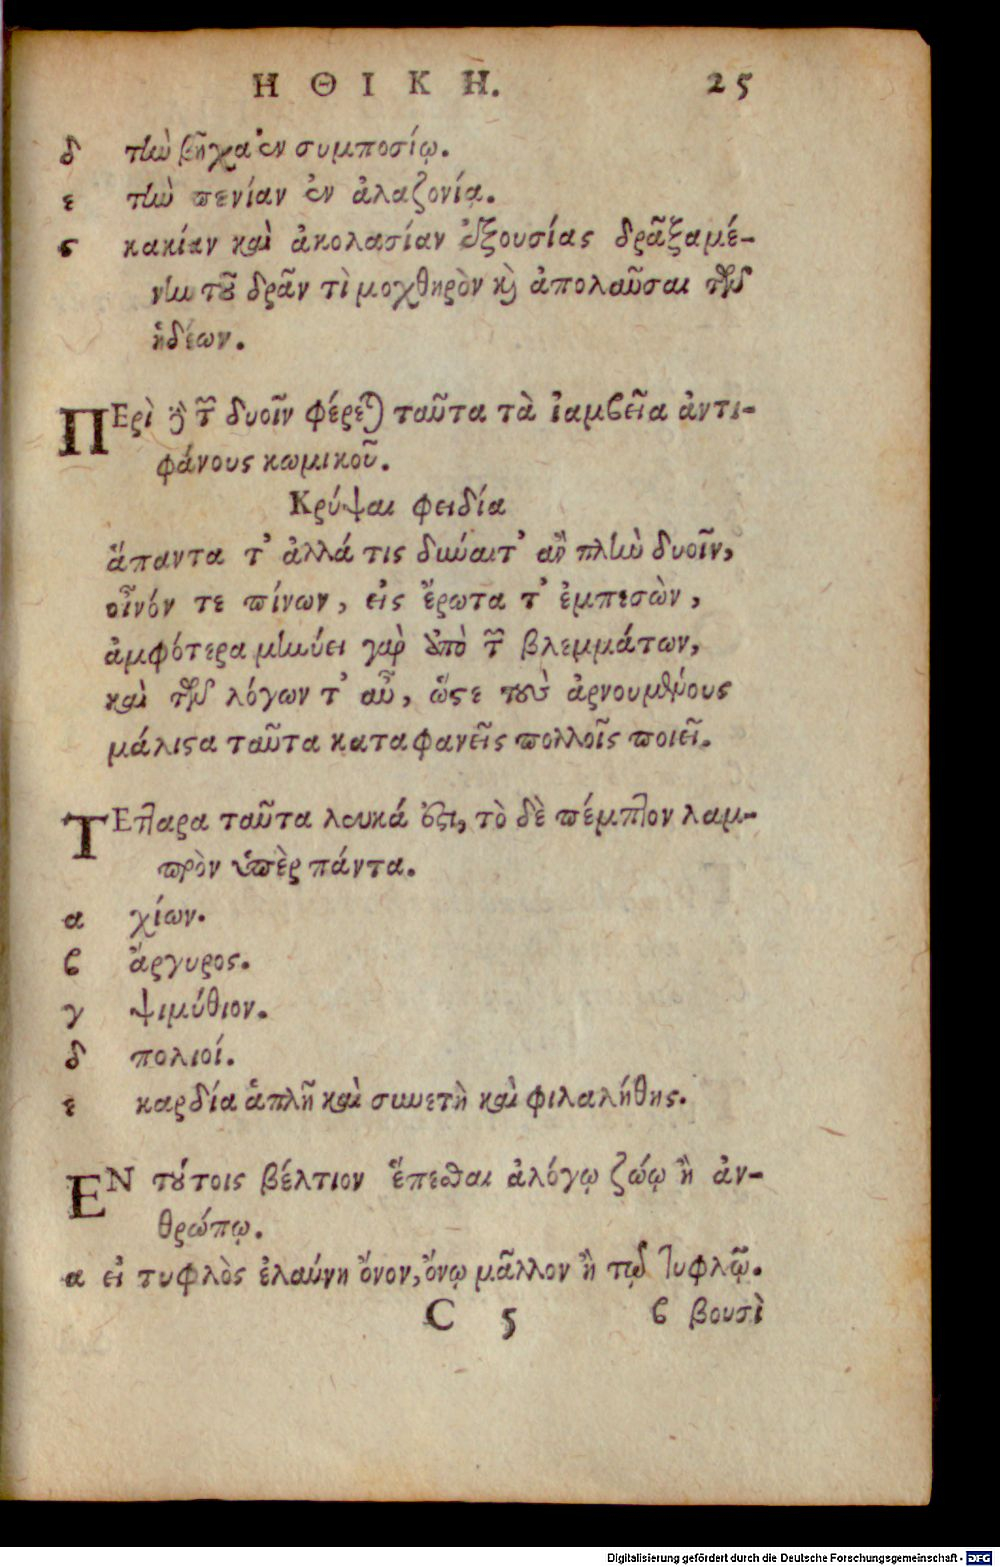 ΗΘΙΚΗ. 25
δ τὴν βῆχα ἐν συμποσίῳ.
ε τὴν πενίαν ἐν ἀλαζονίᾳ.
ϛ κακίαν καὶ ἀκολασίαν ἐξουσίας δρᾶξαμέ-
νην τοῦ δρᾶν τὶ μοχθηρὸν καὶ ἀπολαῦσαι τῶν
ἡδέων.
ΠΕρὶ δὲ τῶν δυοῖν φέρεται ταῦτα τὰ ἰαμβεῖα ἀντι-
φάνους κωμικοῦ.
Κρύψαι φειδία
ἅπαντα τ' ἀλλά τις δύναιτ' ἂν πλὴν δυοῖν,
οἶνόν τε πίνων, εἰς ἔρωτα τ' ἐμπεσὼν,
ἀμφότερα μηνύει γὰρ ἀπὸ τῶν βλεμμάτων,
καὶ τῶν λόγων τ' αὖ, ὥστε τοὺς ἀρνουμένους
μάλιστα ταῦτα καταφανεῖς πολλοῖς ποιεῖ.
ΤΕτταρα ταῦτα λευκά ἐστι, τὸ δὲ πέμπτον λαμ-
πρὸν ὑπὲρ πάντα.
α χίων.
β ἄργυρος.
γ ψιμύθιον.
δ πολιοί.
ε καρδία ἁπλῆ καὶ συνετὴ καὶ φιλαλήθης.
ΕΝ τούτοις βέλτιον ἕπεσθαι ἀλόγῳ ζώῳ ἢ ἀν-
θρώπῳ.
α εἰ τυφλὸς ἐλαύνη ὄνον, ὄνῳ μᾶλλον ἢ τῷ τυφλῷ.
C 5 β βουσὶ
Digitalisierung gefördert durch die Deutsche Forschungsgemeinschaft - DFG